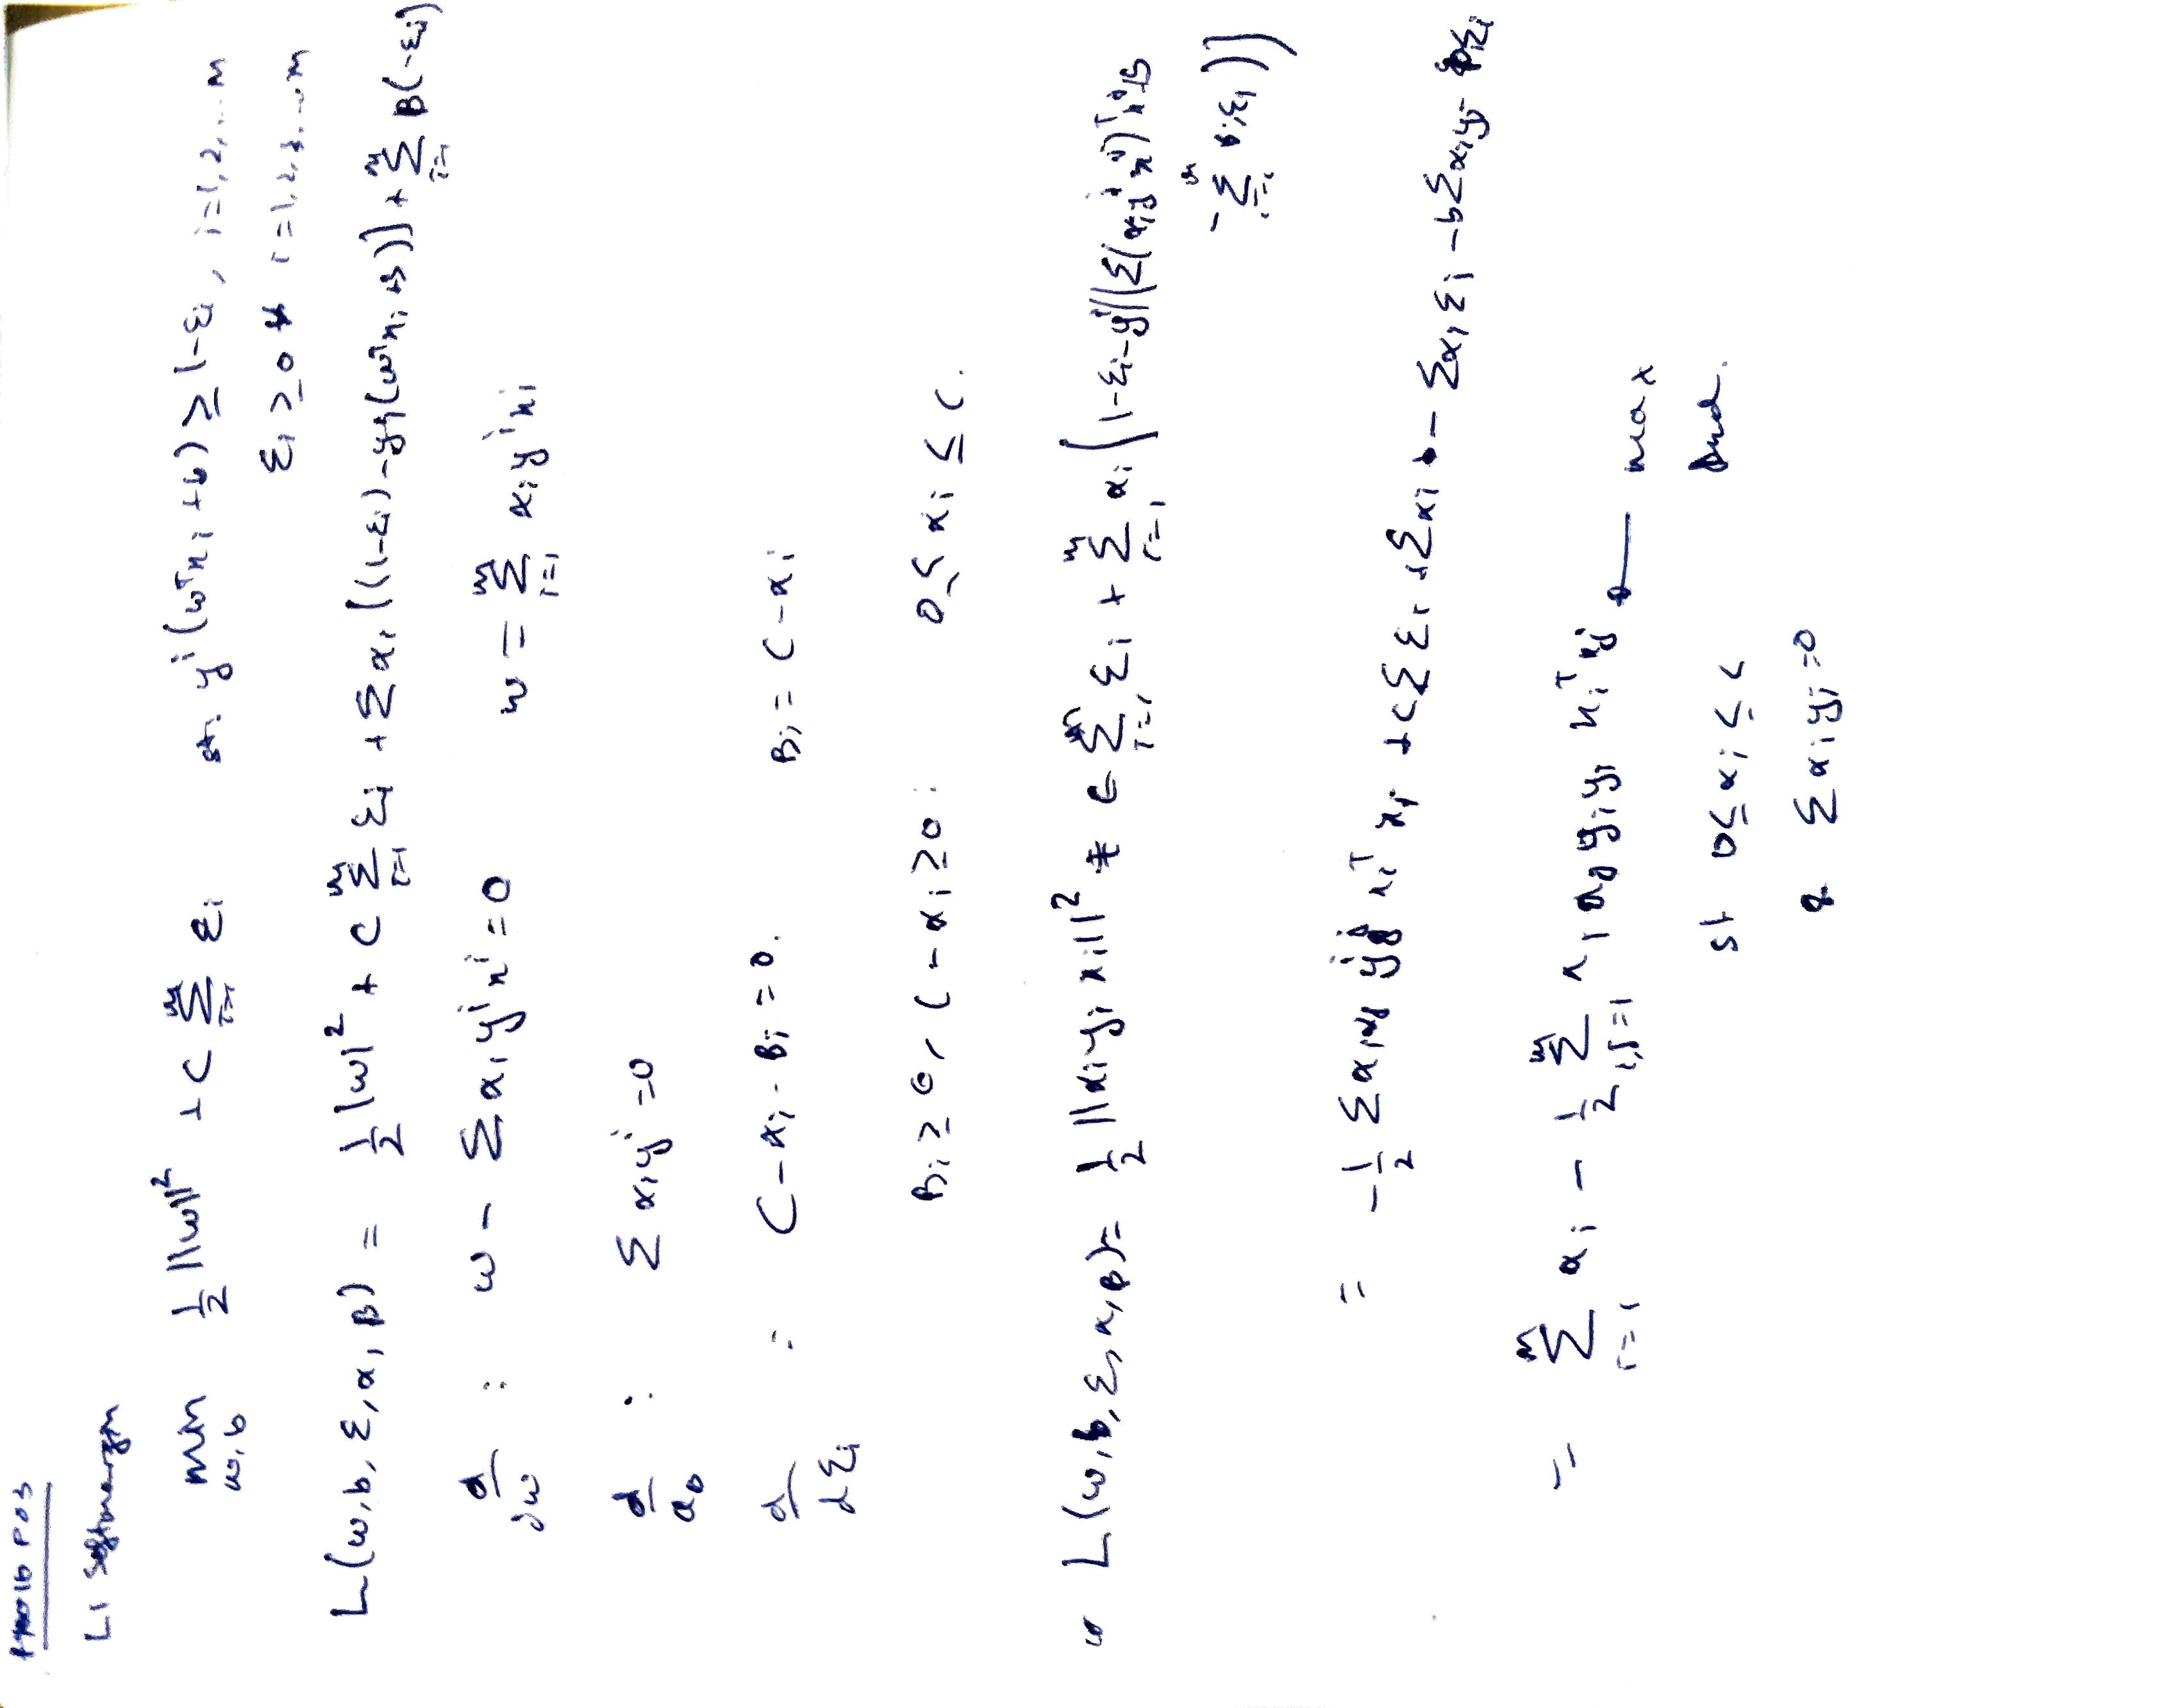 L1 Softmargin
min w,b ½ ||w||² + C Σ_{i=1}^m ε_i st. y^i (w^T x_i + b) ≥ 1-ε_i , i=1,2,..m
ε_i ≥ 0 i=1,2,3,..m
L(w,b,ε,α,β) = ½ |w|² + C Σ_{i=1}^m ε_i + Σ α_i [(1-ε_i) - y^i (w^T x_i + b)] + Σ_{i=1}^m B(-ε_i)
d/dw : w - Σ α_i y^i x^i = 0 w = Σ_{i=1}^m α_i y^i x_i
d/db : Σ α_i y^i = 0
d/dε_i : C - α_i - B_i = 0. B_i = C - α_i
B_i ≥ 0, C - α_i ≥ 0 : 0 ≤ α_i ≤ C.
L(w,b,ε,α,β) = ½ ||α_i y_i x_i||² + C Σ_{i=1}^m ε_i + Σ_{i=1}^m α_i (1-ε_i-y^i ((Σ(α_j y^j x^j)^T x_i + b
- Σ_{i=1}^m B_i ε_i))
= -½ Σ α_i α_j y^i y^j x_i^T x_j + C Σ ε_i + Σ α_i - Σ α_i ε_i - b Σ α_i y_i -
= Σ_{i=1}^m α_i - ½ Σ_{i,j=1}^m α_i α_j y_i y_j x_i^T x_j — max
st 0 ≤ α_i ≤ C Dual.
& Σ α_i y_i = 0